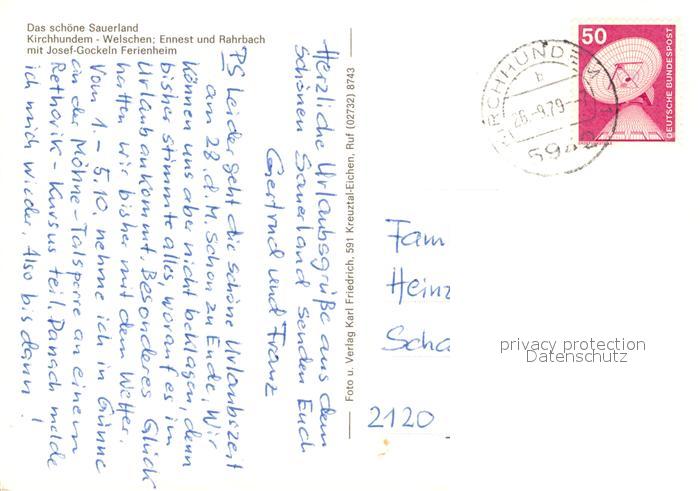 Das schöne Sauerland
Kirchhundem - Welschen; Ennest und Rahrbach
mit Josef-Gockeln Ferienheim
Herzliche Urlaubsgrüße aus dem
schönen Sauerland senden Euch
Gertrud und Franz
PS Leider geht die schöne Urlaubszeit
am 28. d. M. schon zu Ende. Wir
können uns aber nicht beklagen, denn
bisher stimmte alles, worauf es im
Urlaub ankommt. Besonderes Glück
hatten wir bisher mit dem Wetter.
Vom 1. - 5.10. nehme ich in Günne
an der Möhne-Talsperre an einem
Rethorik-Kursus teil. Danach melde
ich mich wieder. Also bis dann!
Foto u. Verlag Karl Friedrich, 591 Kreuztal-Eichen, Ruf (02732) 8743
50
DEUTSCHE BUNDESPOST
KIRCHHUNDEM 1
b
26.-9.79
5942
Fam
Heinz
Scha
2120
privacy protection
Datenschutz